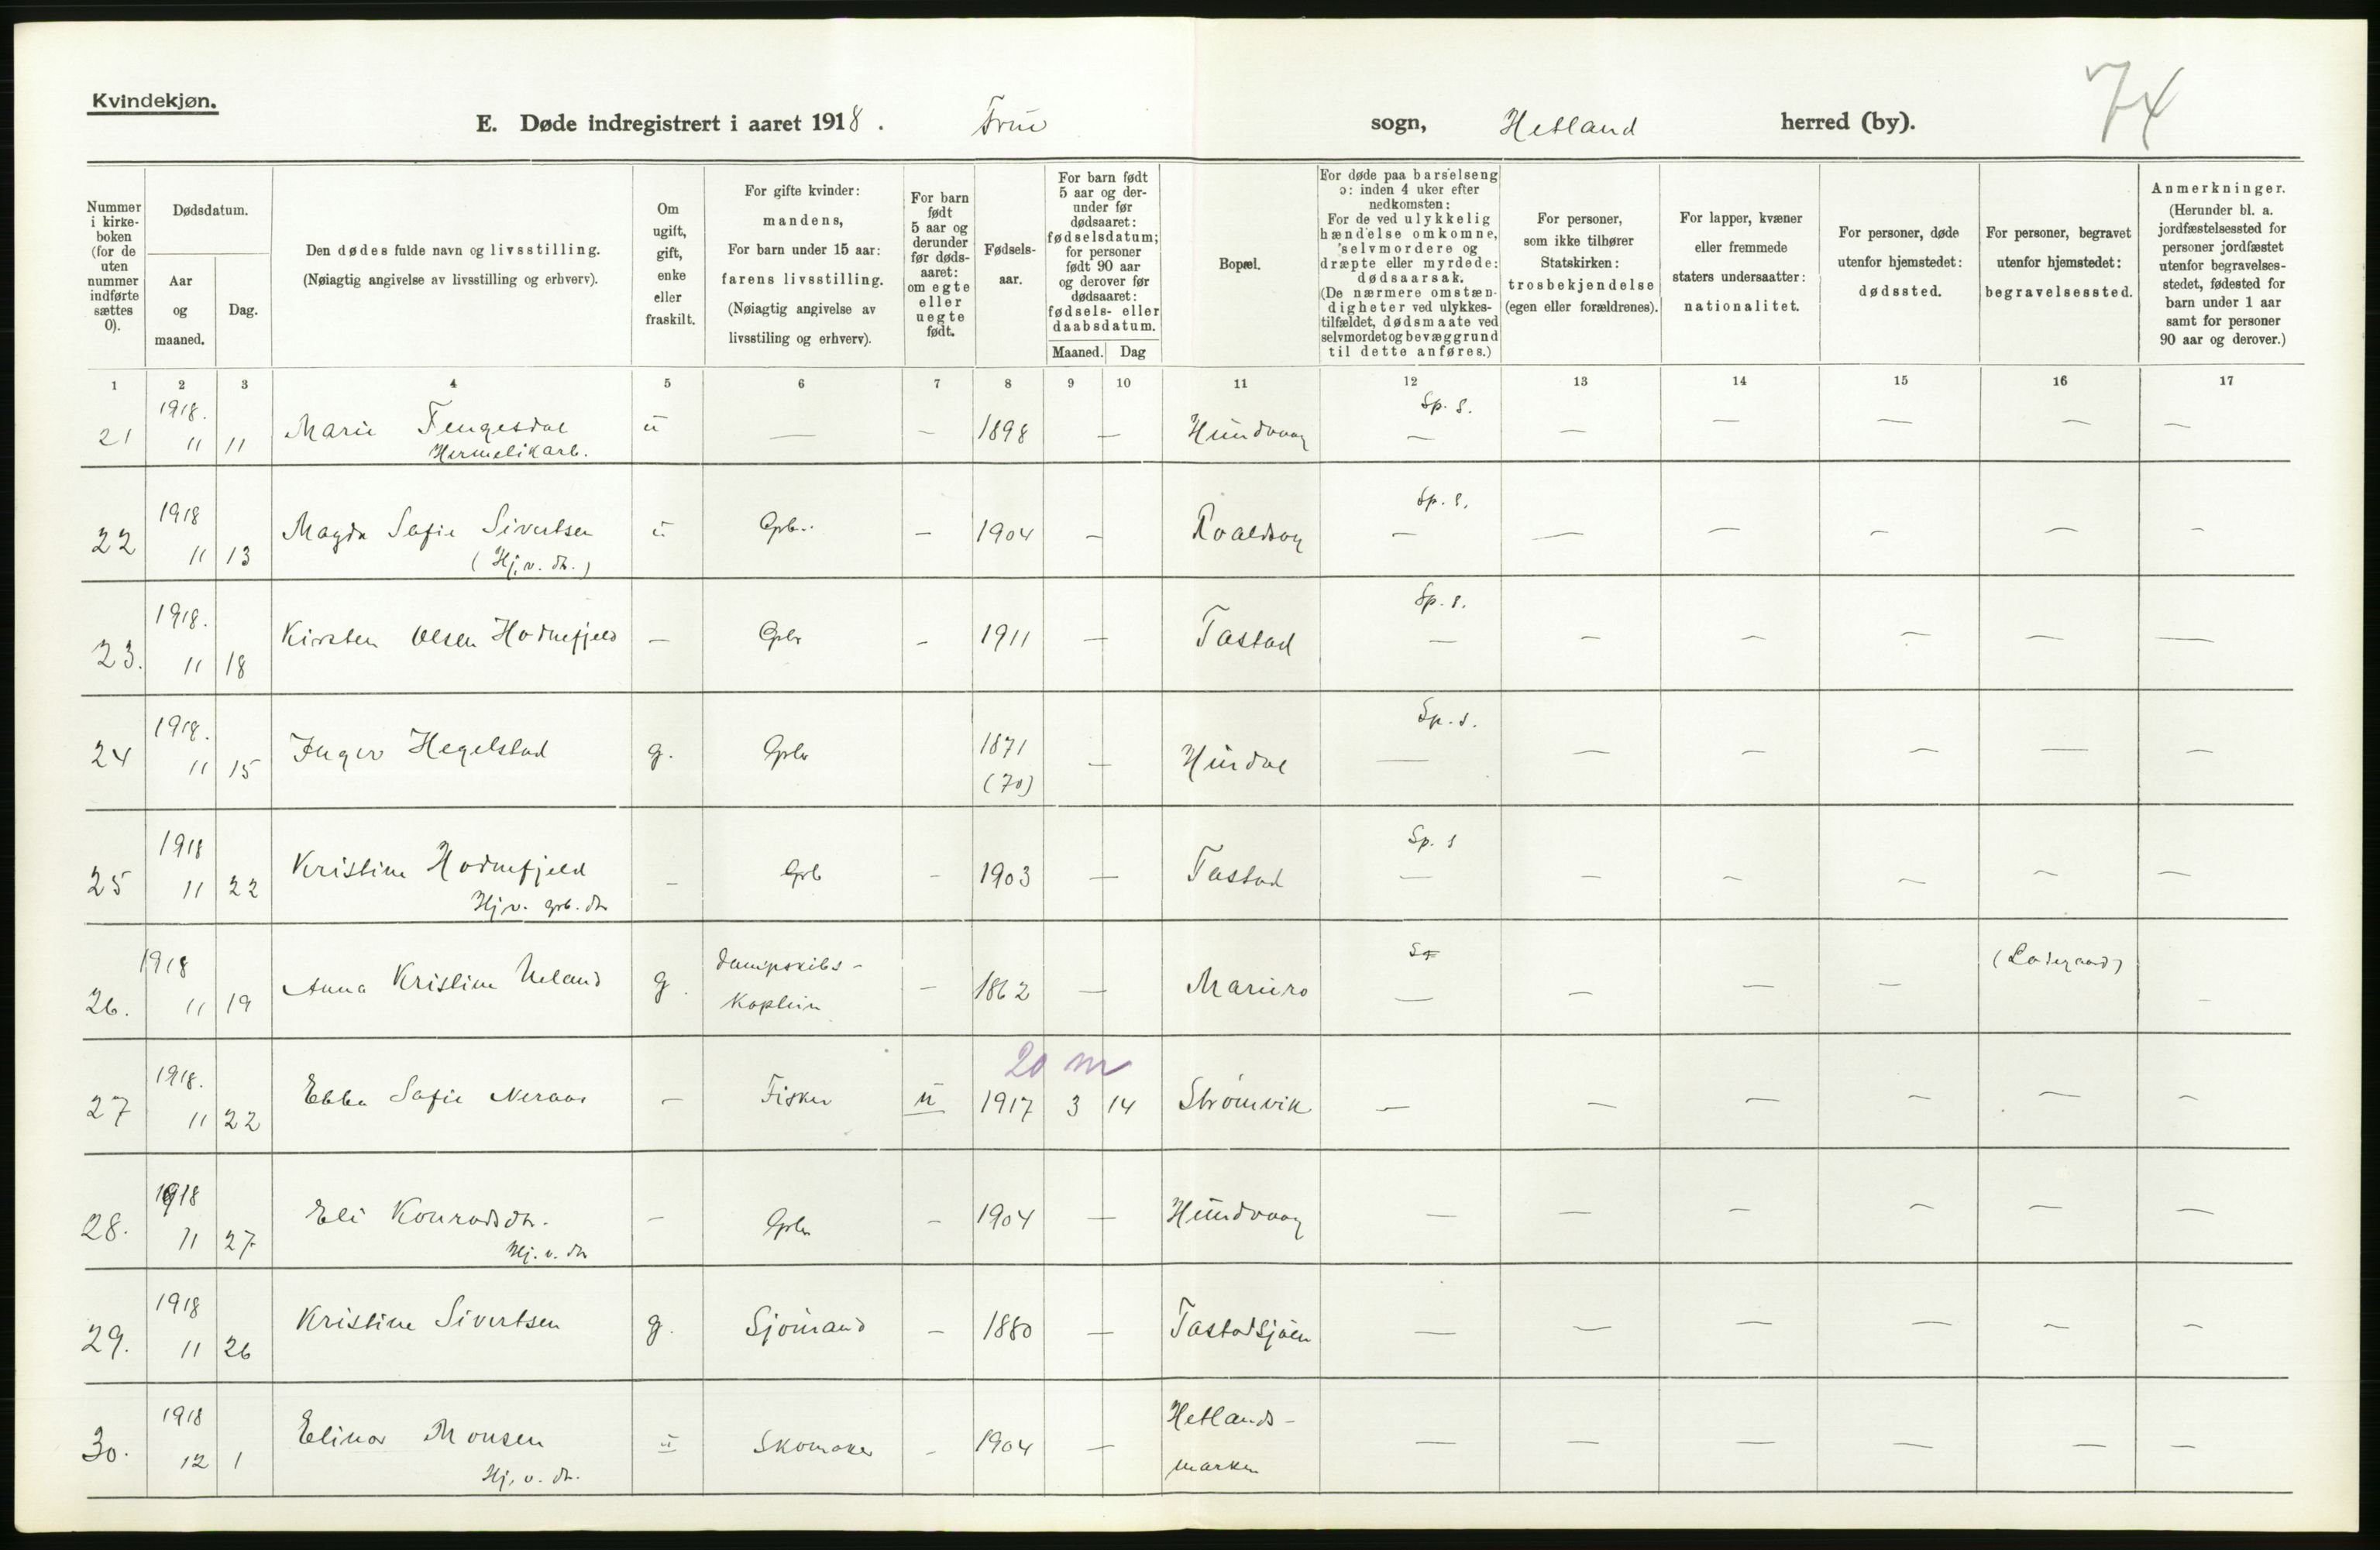 Kvindekjøn.
E. Døde indregistrert i aaret 1918. Frue sogn, Hetland herred (by).
74
Nummer i kirkeboken (for de uten nummer indførte sættes 0).
Dødsdatum.
Aar og maaned.
Dag.
Den dødes fulde navn og livsstilling.
(Nøiagtig angivelse av livsstilling og erhverv).
Om ugift, gift, enke eller fraskilt.
For gifte kvinder: mandens,
For barn under 15 aar: farens livsstilling.
(Nøiagtig angivelse av livsstiling og erhverv).
For barn født 5 aar og derunder før dødsaaret: om egte eller uegte født.
Fødselsaar.
For barn født 5 aar og derunder før dødsaaret: fødselsdatum; for personer født 90 aar og derover før dødsaaret: fødsels- eller daabsdatum.
Maaned. Dag
Bopæl.
For døde paa barselseng ɔ: inden 4 uker efter nedkomsten:
For de ved ulykkelig hændelse omkomne, selvmordere og dræpte eller myrdede: dødsaarsak.
(De nærmere omstændigheter ved ulykkestilfældet, dødsmaate ved selvmordet og bevæggrund til dette anføres.)
For personer, som ikke tilhører Statskirken: trosbekjendelse (egen eller forældrenes).
For lapper, kvæner eller fremmede staters undersaatter: nationalitet.
For personer, døde utenfor hjemstedet: dødssted.
For personer, begravet utenfor hjemstedet: begravelsessted.
Anmerkninger.
(Herunder bl. a. jordfæstelsessted for personer jordfæstet utenfor begravelsesstedet, fødested for barn under 1 aar samt for personer 90 aar og derover.)
1 2 3 4 5 6 7 8 9 10 11 12 13 14 15 16 17
1918. Sp. s.
21 11 11 Marie Tengesdal u — — 1898 — Hundvaag — — — — — —
Hermetikarb.
1918 Sp. s.
22 11 13 Magda Sofie Sivertsen u Gbr. — 1904 — Roaldsøy — — — — — —
(Hj. v. dtr.)
1918. Sp. s.
23. 11 18 Kirsten Olsen Hodnefjeld — Gbr — 1911 — Tastad — — — — — —
1918. Sp. s.
24 11 15 Inger Hegelstad g. Gbr 1871 — Hindal — — — — — —
(70)
1918 Sp. s
25 11 22 Kristine Hodnefjeld — Grb — 1903 — Tastad — — — — — —
Hj v. grb. dtr
1918 dampskibs-
26. 11 19 Anna Kristine Ueland g. Kaptein — 1862 — Mariero — — — — (Ladegaard) —
20 m
1918.
27 11 22 Ebba Sofie Neraas — Fisker u 1917 3 14 Strømvik — — — — — —
1918
28. 11 27 Eli Konradsdtr. — Gbr — 1904 — Hundvaag — — — — — —
Hj. v. dtr
1918
29. 11 26 Kristine Sivertsen g. Sjømand — 1880 — Tastadsjøen — — — — — —
1918 Hetlands-
30. 12 1 Elinor Monsen u Skomaker — 1904 — marken — — — — — —
Hj. v. dtr.